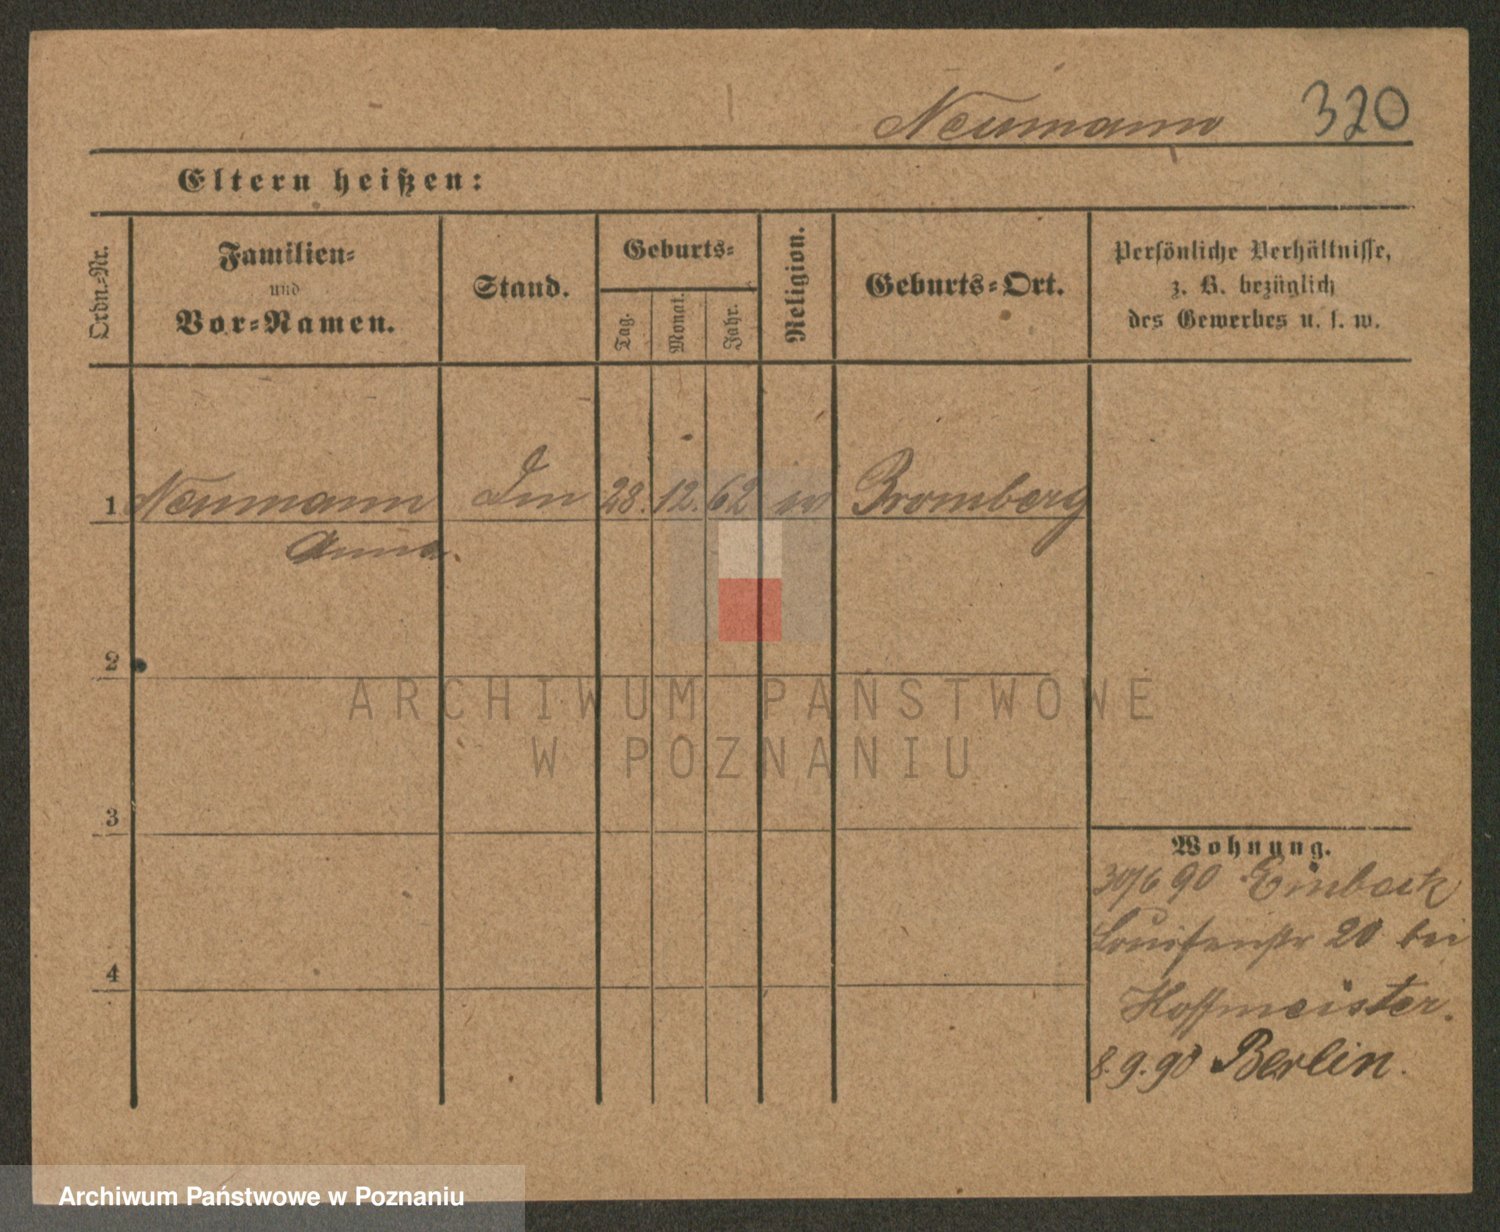 Neumann 320
Eltern heißen:
Ordn.-Nr.
Familien-
und
Vor-Namen.
Stand.
Geburts-
Tag.
Monat.
Jahr.
Religion.
Geburts-Ort.
Persönliche Verhältnisse,
z. B. bezüglich
des Gewerbes u. s. w.
1 Neumann 28. 12. 62 Bromberg
Anna.
2
3
4
Wohnung.
30/6 90 Einbeck
Louisenstr 20 bei
Hoffmeister.
8.9.90 Berlin.
ARCHIWUM PAŃSTWOWE
W POZNANIU
Archiwum Państwowe w Poznaniu